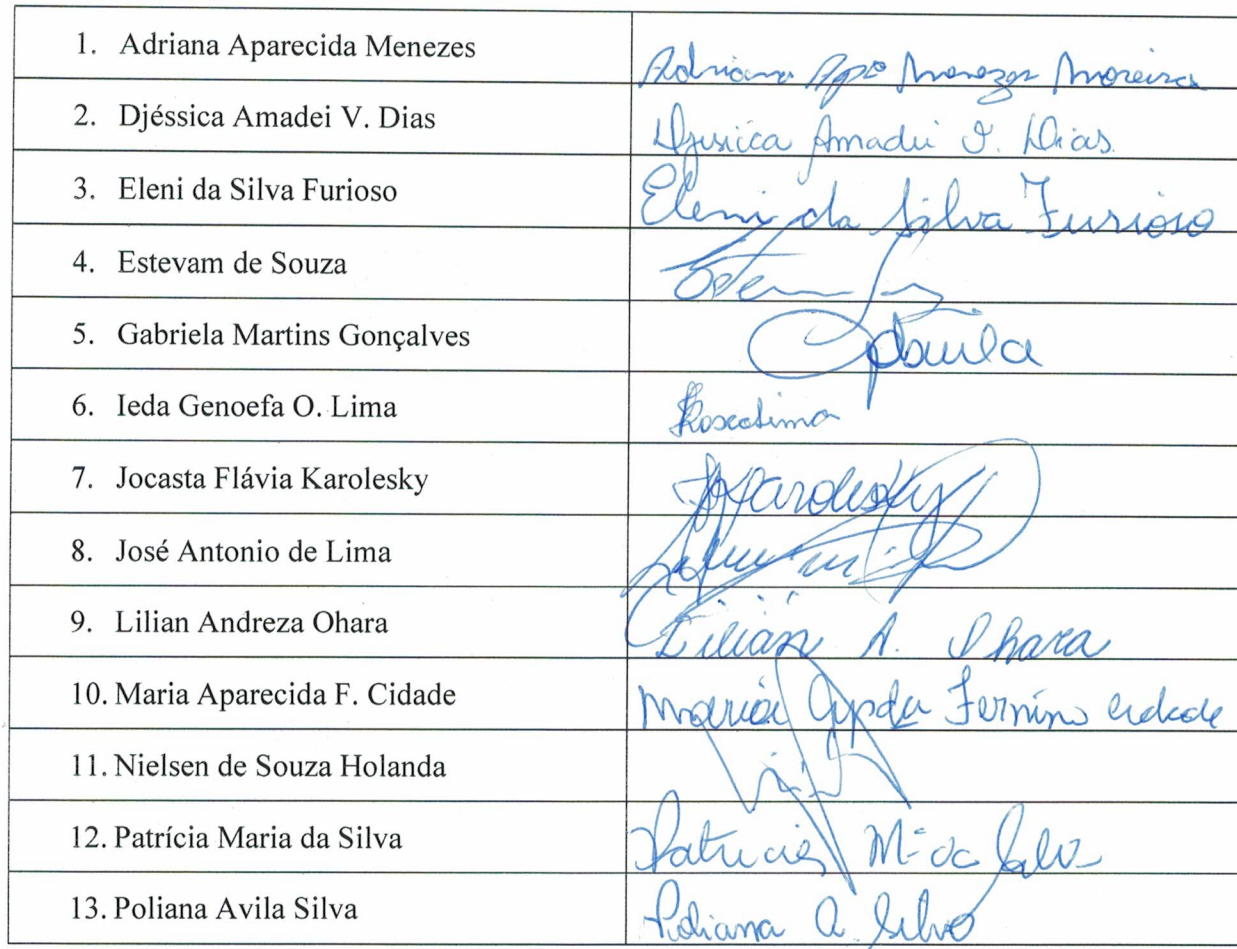 1. Adriana Aparecida Menezes
Adriana Apª Menezes Moreira
2. Djéssica Amadei V. Dias
Djessica Amadei V. Dias
3. Eleni da Silva Furioso
Eleni da Silva Furioso
4. Estevam de Souza
5. Gabriela Martins Gonçalves
6. Ieda Genoefa O. Lima
7. Jocasta Flávia Karolesky
Karolesky
8. José Antonio de Lima
9. Lilian Andreza Ohara
Lilian A. Ohara
10. Maria Aparecida F. Cidade
Maria Apda Fermino Cidade
11. Nielsen de Souza Holanda
12. Patrícia Maria da Silva
Patricia Mª da Silva
13. Poliana Avila Silva
Poliana A. Silva